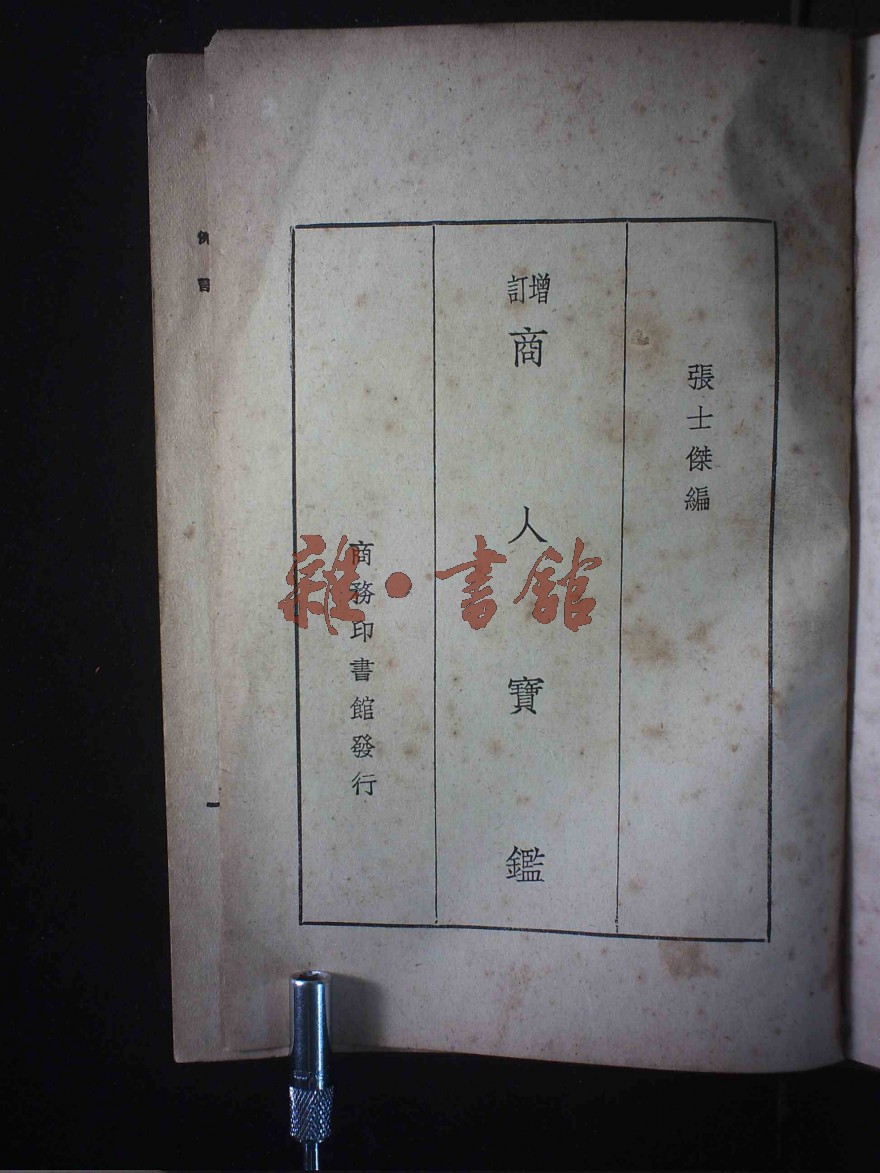 張士傑編
增訂
商人寶鑑
商務印書館發行
雜·書館